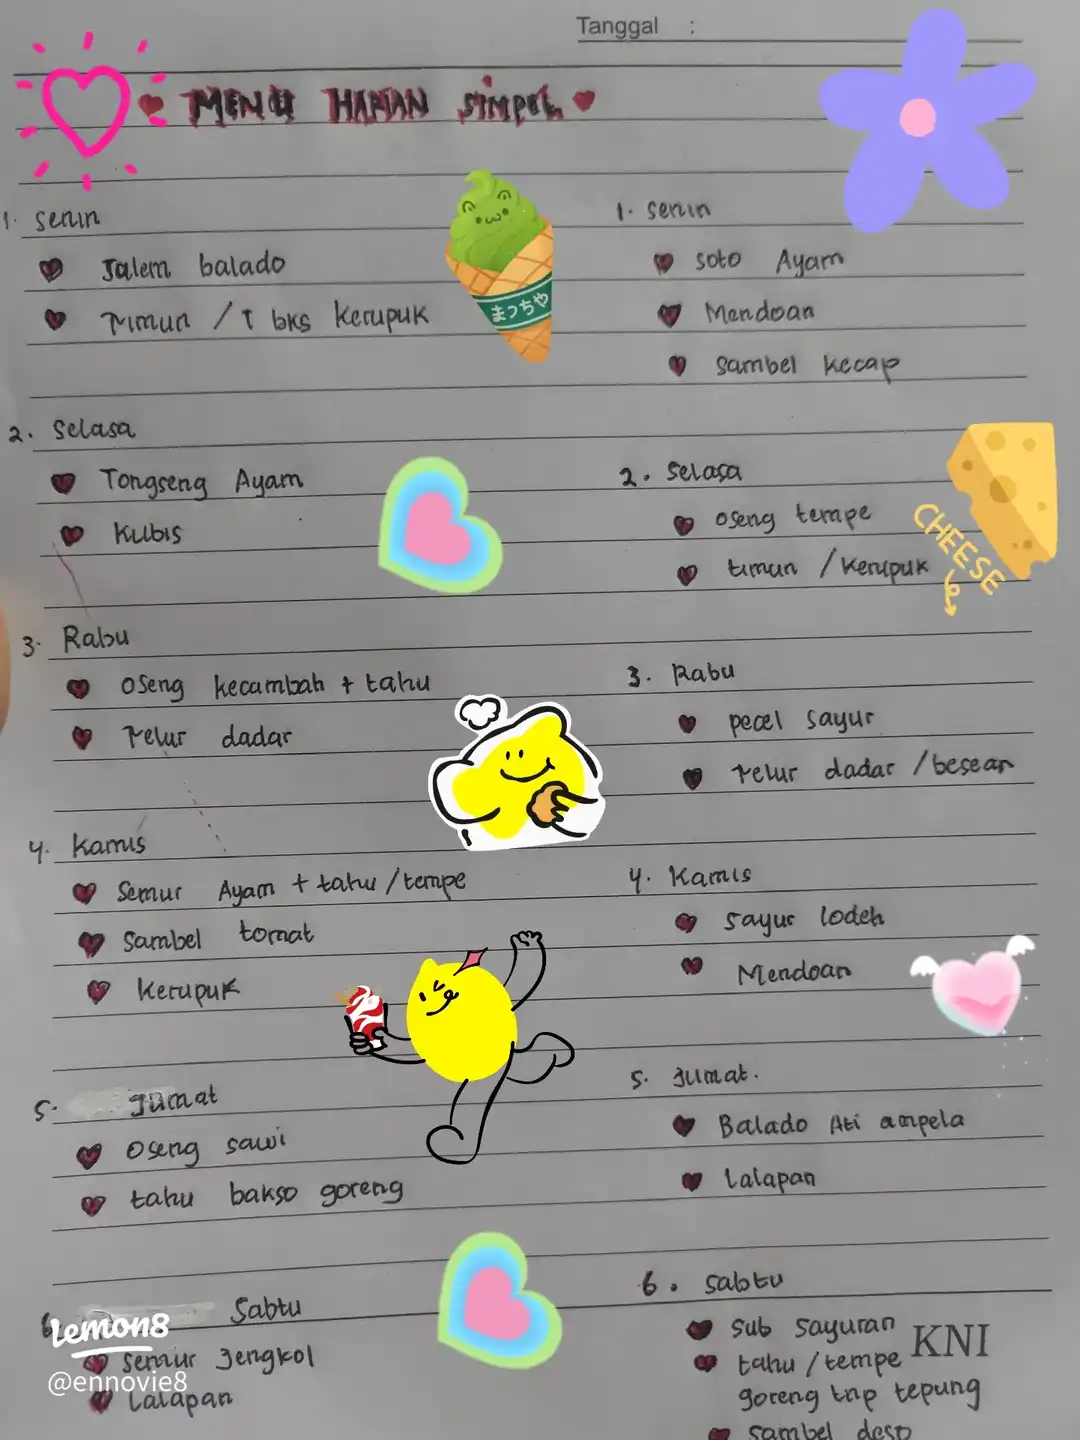 Tanggal :
MENU HARIAN SIMPEL
1. Senin
Jalem balado
Timun / 1 bks Kerupuk
2. Selasa
Tongseng Ayam
Kubis
3. Rabu
Oseng kecambah + tahu
Telur dadar
4. Kamis
Semur Ayam + tahu / tempe
Sambel tomat
Kerupuk
5. Jumat
Oseng sawi
tahu bakso goreng
6. Sabtu
Semur Jengkol
Lalapan
1. Senin
Soto Ayam
Mendoan
Sambel kecap
2. Selasa
Oseng tempe
timun / Kerupuk
3. Rabu
pecel sayur
Telur dadar / besean
4. Kamis
Sayur lodeh
Mendoan
5. Jumat.
Balado Ati ampela
Lalapan
6. Sabtu
Sub Sayuran
tahu / tempe
goreng tnp tepung
Sambel deso
まっちゃ
CHEESE
KNI
Lemon8
@ennovie8